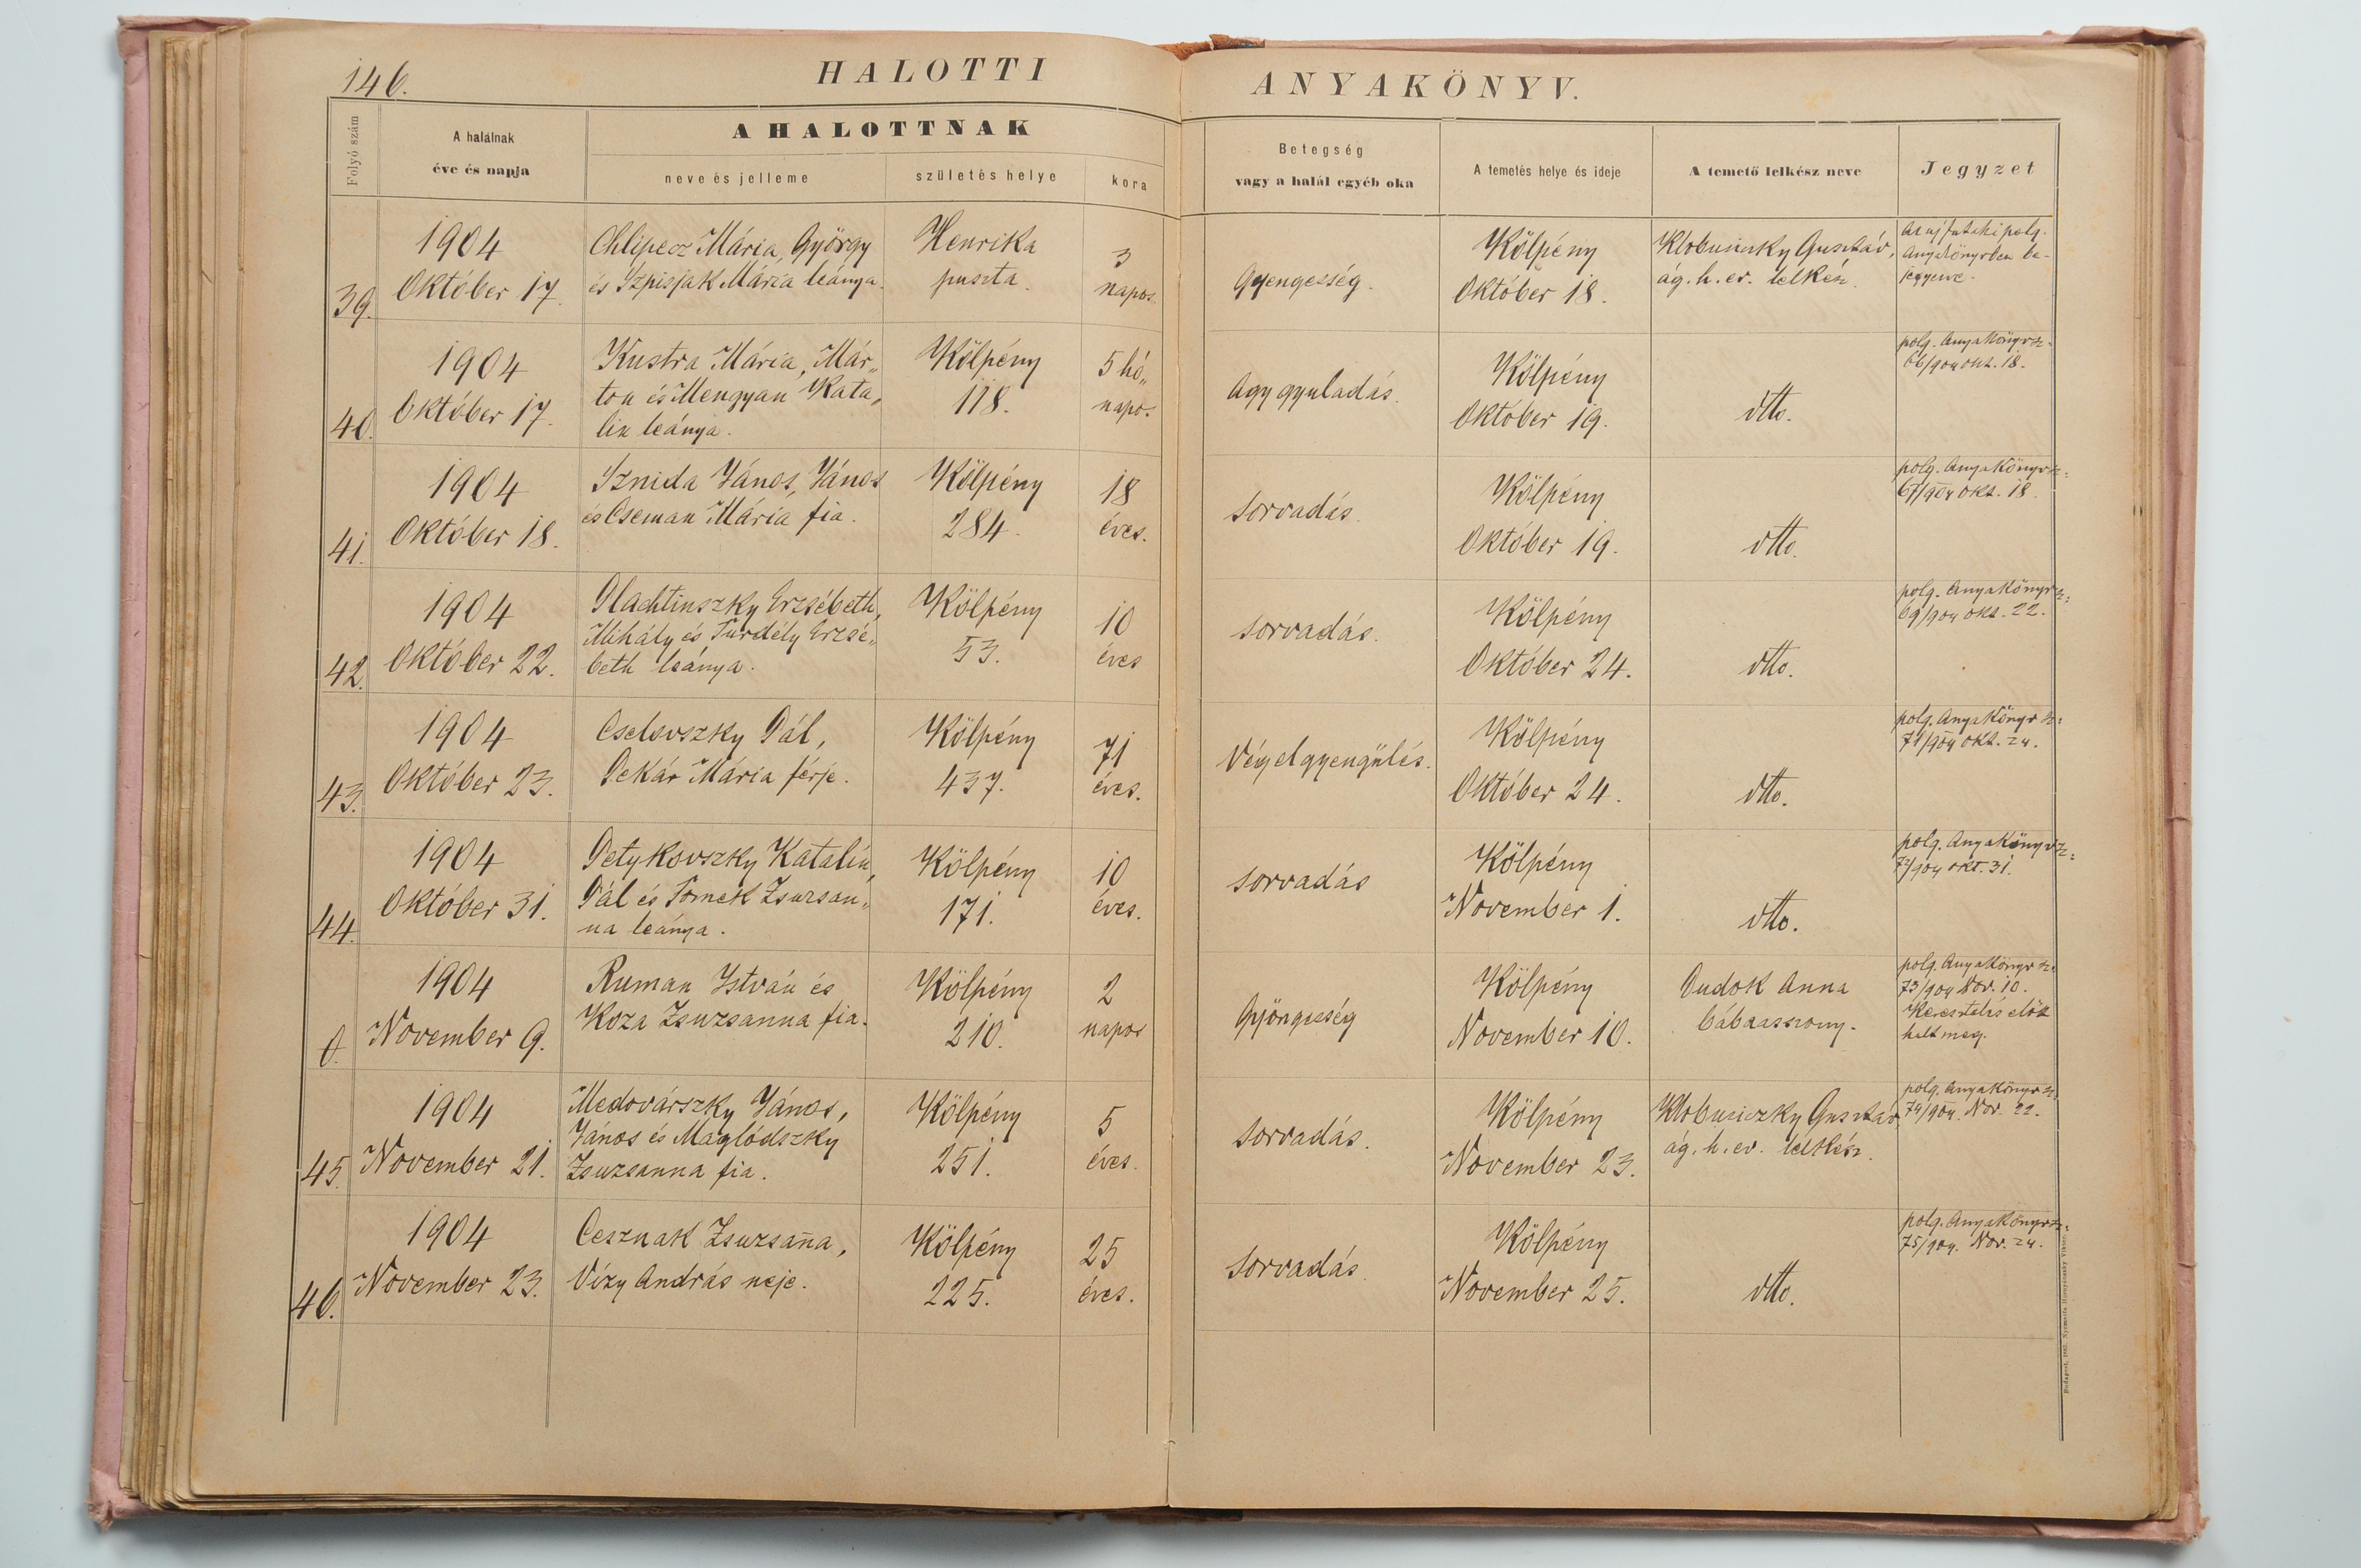 146.
HALOTTI ANYAKÖNYV.
Folyó szám
A halálnak
éve és napja
A HALOTTNAK
neve és jelleme
születés helye
kora
Betegség
vagy a halál egyéb oka
A temetés helye és ideje
A temető lelkész neve
Jegyzet
39.
1904
Október 17.
Chlipecz Mária, György
és Szpisjak Mária leánya.
Henrika
puszta.
3
napos.
Gyengeség.
Kölpény
Október 18.
Klobusiczky Gusztáv,
ág. h. ev. lelkész.
Az ujfutaki polg.
Anyakönyvben be-
jegyezve.
40.
1904
Október 17.
Kustra Mária, Már„
ton és Mengyan Kata„
lin leánya.
Kölpény
118.
5 hó„
napo.
Agygyuladás.
Kölpény
Október 19.
dtto.
polg. Anyakönyv sz:
66/904 okt. 18.
41.
1904
Október 18.
Sznida János, János
és Cseman Mária fia.
Kölpény
284.
18
éves.
sorvadás.
Kölpény
Október 19.
dtto.
polg. Anyakönyv sz:
67/904 okt. 18.
42.
1904
Október 22.
Plachtinszky Erzsébeth,
Mihály és Turdély Erzsé„
beth leánya.
Kölpény
53.
10
éves
sorvadás.
Kölpény
Október 24.
dtto.
polg. Anyakönyv sz:
69/904 okt. 22.
43.
1904
Október 23.
Cselovszky Pál,
Pekár Mária férje.
Kölpény
437.
71
éves.
Végelgyengülés.
Kölpény
Október 24.
dtto.
polg. Anyakönyv sz:
71/904 okt. 24.
44.
1904
Október 31.
Petykovszky Katalin,
Pál és Tomek Zsuzsan„
na leánya.
Kölpény
171.
10
éves.
sorvadás
Kölpény
November 1.
dtto.
polg. Anyakönyv sz:
72/904 okt. 31.
0.
1904
November 9.
Ruman István és
Koza Zsuzsanna fia.
Kölpény
210.
2
napos
Gyöngeség
Kölpény
November 10.
Dudok Anna
bábaasszony.
polg. Anyakönyv sz:
73/904 Nov. 10.
Keresztelés előtt
halt meg.
45.
1904
November 21.
Medovárszky János,
János és Maglódszky
Zsuzsanna fia.
Kölpény
251.
5
éves.
sorvadás.
Kölpény
November 23.
Klobusiczky Gusztáv
ág. h. ev. lelkész.
polg. Anyakönyv sz.
74/904. Nov. 22.
46.
1904
November 23.
Cesznak Zsuzsana,
Vízy András neje.
Kölpény
225.
25
éves.
sorvadás.
Kölpény
November 25.
dtto.
polg. Anyakönyv sz:
75/904. Nov. 24.